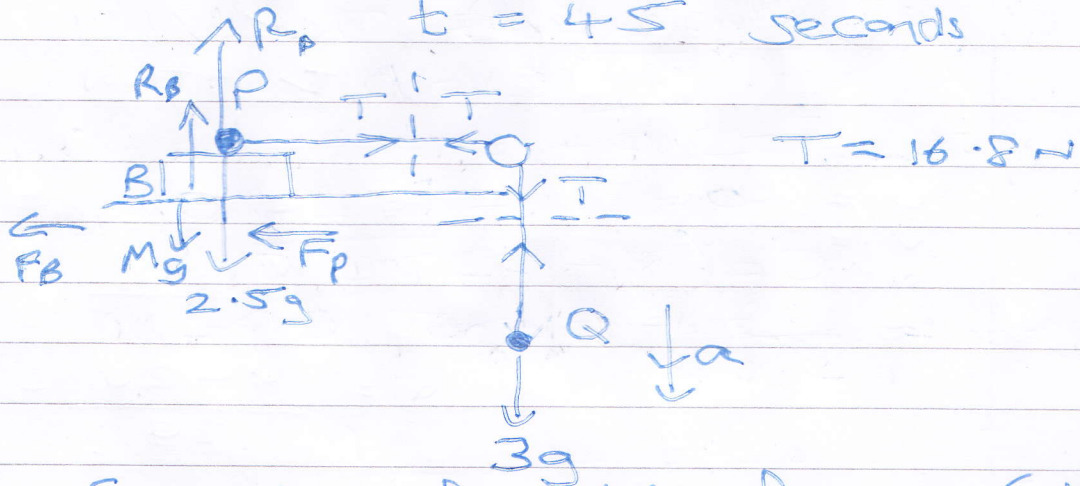 t = 45 seconds
Rp
RB P
T T
T = 16.8 N
B T
FB Mg Fp
2.5g
Q
a
3g